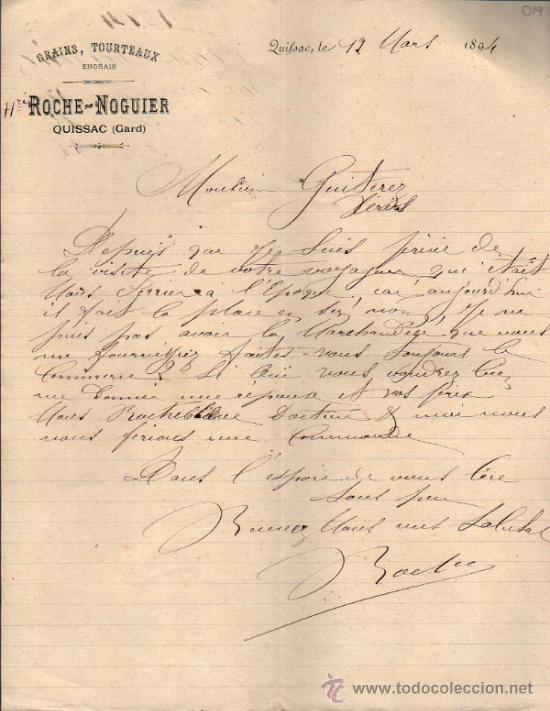 019
GRAINS, TOURTEAUX
ENGRAIS
Quissac, le 12 Mars 1894
ROCHE-NOGUIER
QUISSAC (Gard)
Monsieur Guiterez
Depuis que je suis privé de
la visite de votre voyageur qui était
a l'Epoque, car aujourd'hui
il fait la place en son nom, Je ne
puis pas avoir la Marchandise que vous
me fournissiez faites-vous toujours le
Commerce Si Oui vous voudrez bien
me donner une réponse et vos prix
Docteur & moi nous
vous ferions une Commande
Dans l'espoir de vous lire
sous peu
Recevez mes Saluts
Roche
www.todocoleccion.net